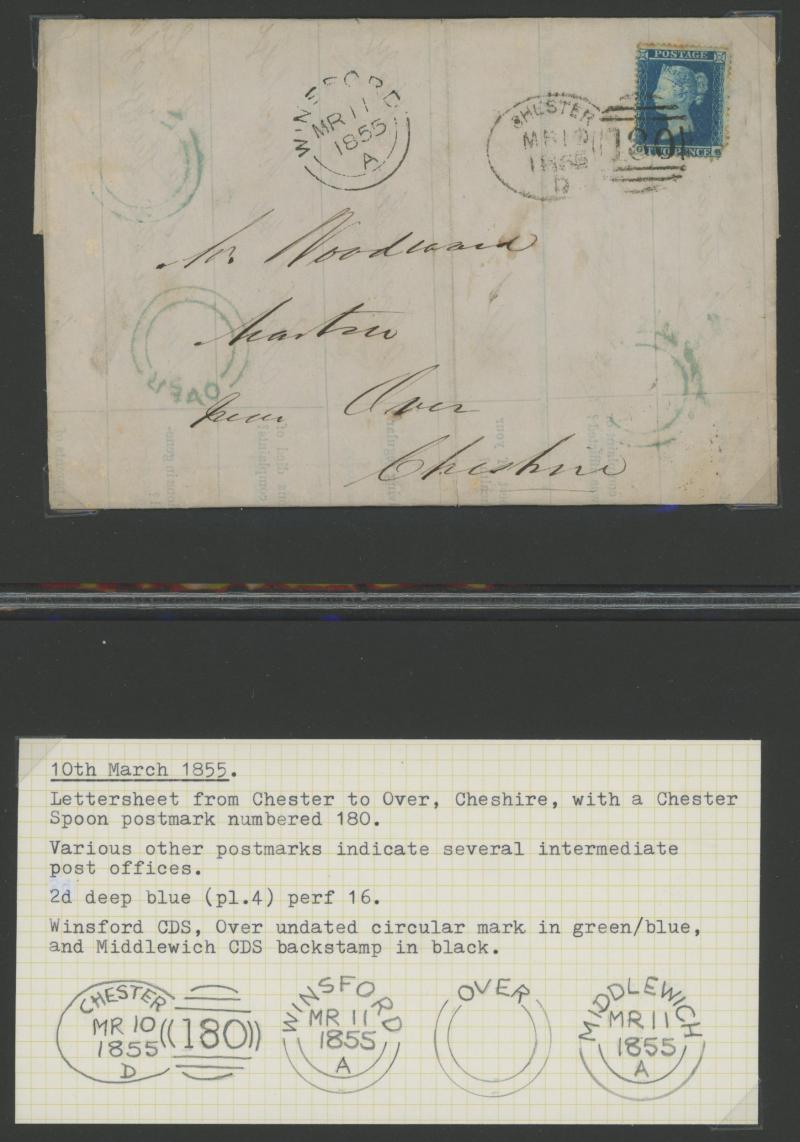 WINSFORD
MR 11
1855
A
CHESTER
MR 10
1855
D
180
POSTAGE
TWO PENCE
Mr Woodward
near Over
Cheshire
OVER
10th March 1855.
Lettersheet from Chester to Over, Cheshire, with a Chester
Spoon postmark numbered 180.
Various other postmarks indicate several intermediate
post offices.
2d deep blue (pl.4) perf 16.
Winsford CDS, Over undated circular mark in green/blue,
and Middlewich CDS backstamp in black.
CHESTER
MR 10
1855
D
((180))
WINSFORD
MR 11
1855
A
OVER
MIDDLEWICH
MR 11
1855
A